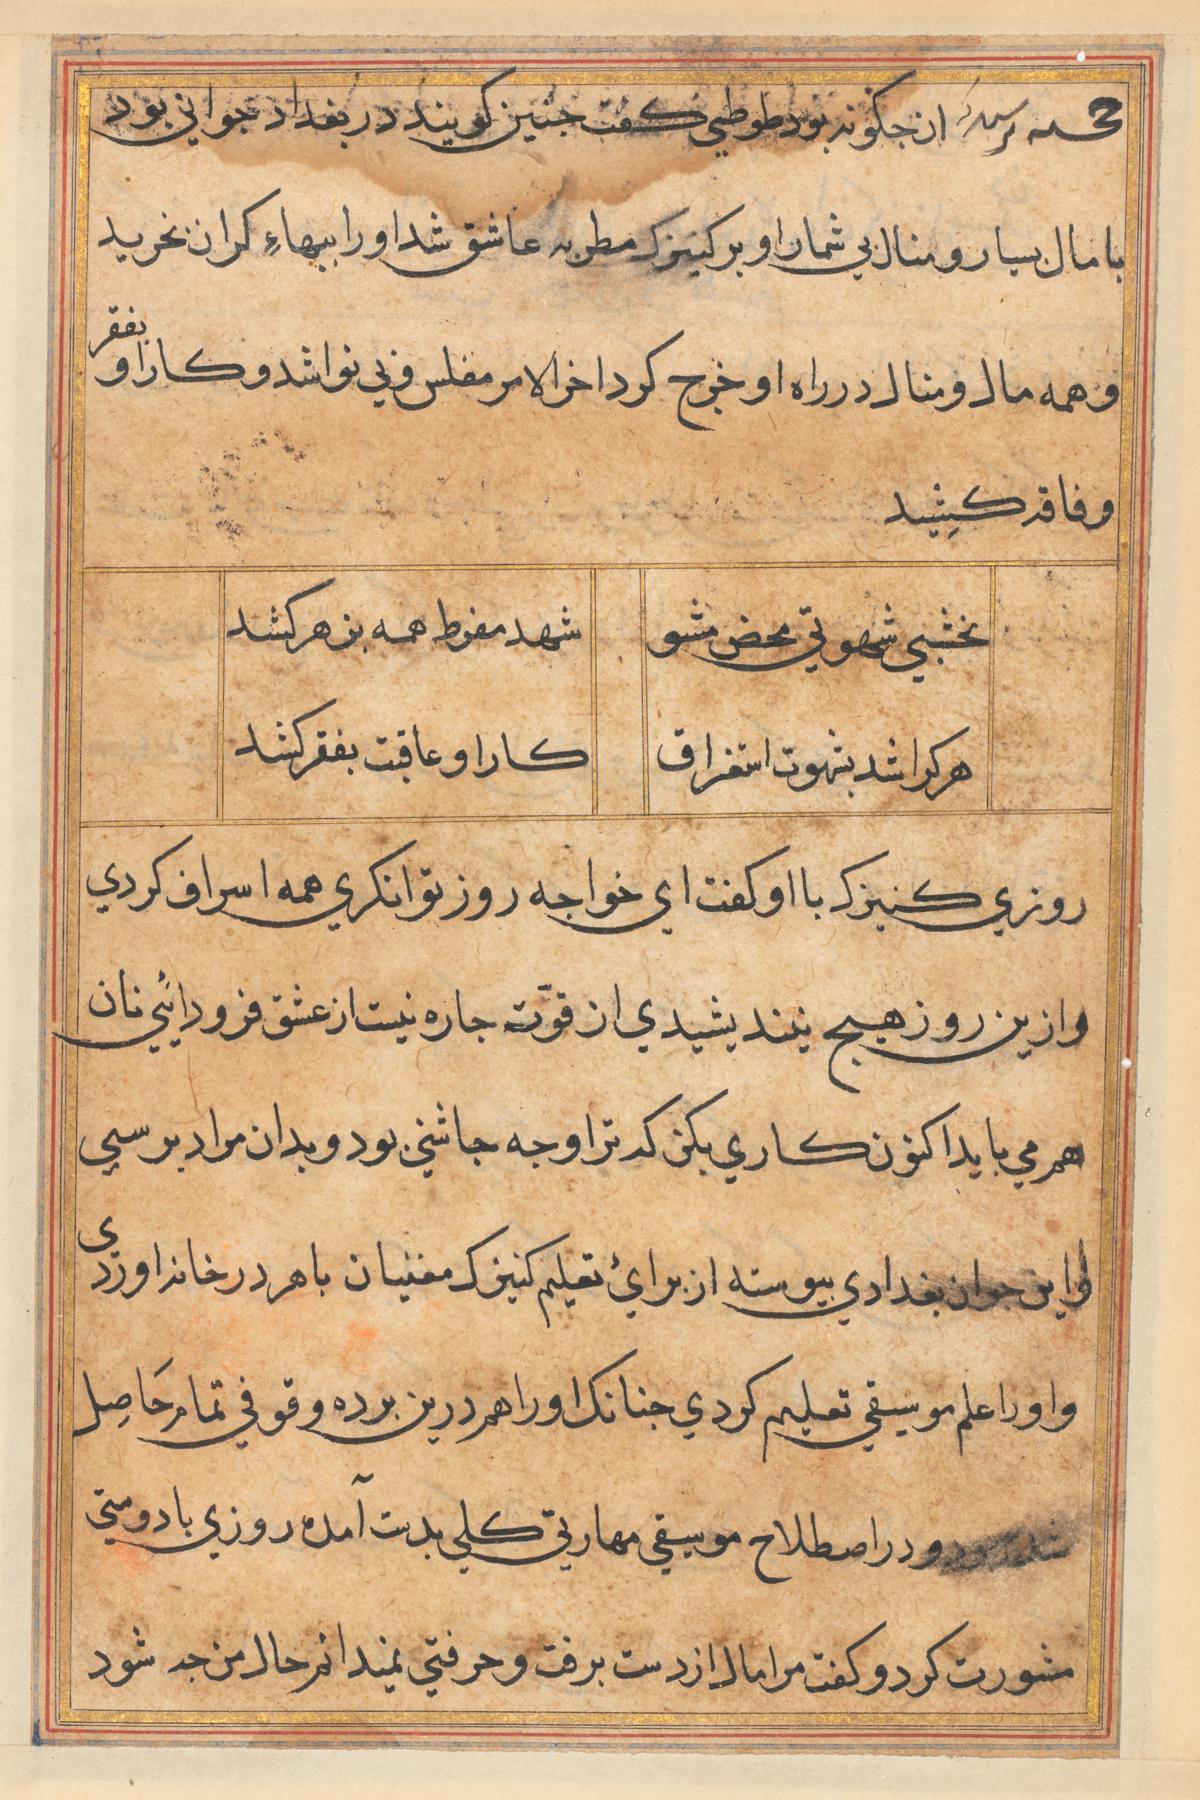 خجسته پرسید که ان جکونه بود طوطی کفت جنین کویند در بغداد جوانی بود
با مال بسیار و منال بی شمار او بر کنیزک مطربه عاشق شد او را ببهاء کران بخرید
و همه مال و منال در راه او خرج کرد اخر الامر مفلس و بی نوا شد و کار او بفقر
و فاقه کشید
نخشبی شهوتی محض مشو
شهد مفرط همه بزهر کشد
هر کرا شد بشهوت استغراق
کار او عاقبت بفقر کشد
روزی کنیزک با او کفت ای خواجه روز توانکری همه اسراف کردی
و ازین روز هیج نیندیشیدی از قوّت جاره نیست از عشق فرود ائی نان
هم می باید اکنون کاری بکن که ترا وجه جاشنی بود و بدان مراد برسی
و این جوان بغدادی بیوسته از برای تعلیم کنیزک مغنیان باهر در خانه اوردی
و او را علم موسیقی تعلیم کردی جنانک او را هم درین برده وقوفی تمام حاصل
شده بود و در اصطلاح موسیقی مهارتی کلی بدست آمده روزی با دوستی
مشورت کرد و کفت مرا مال از دست برفت و حرفتی نمیدانم حال من جه شود